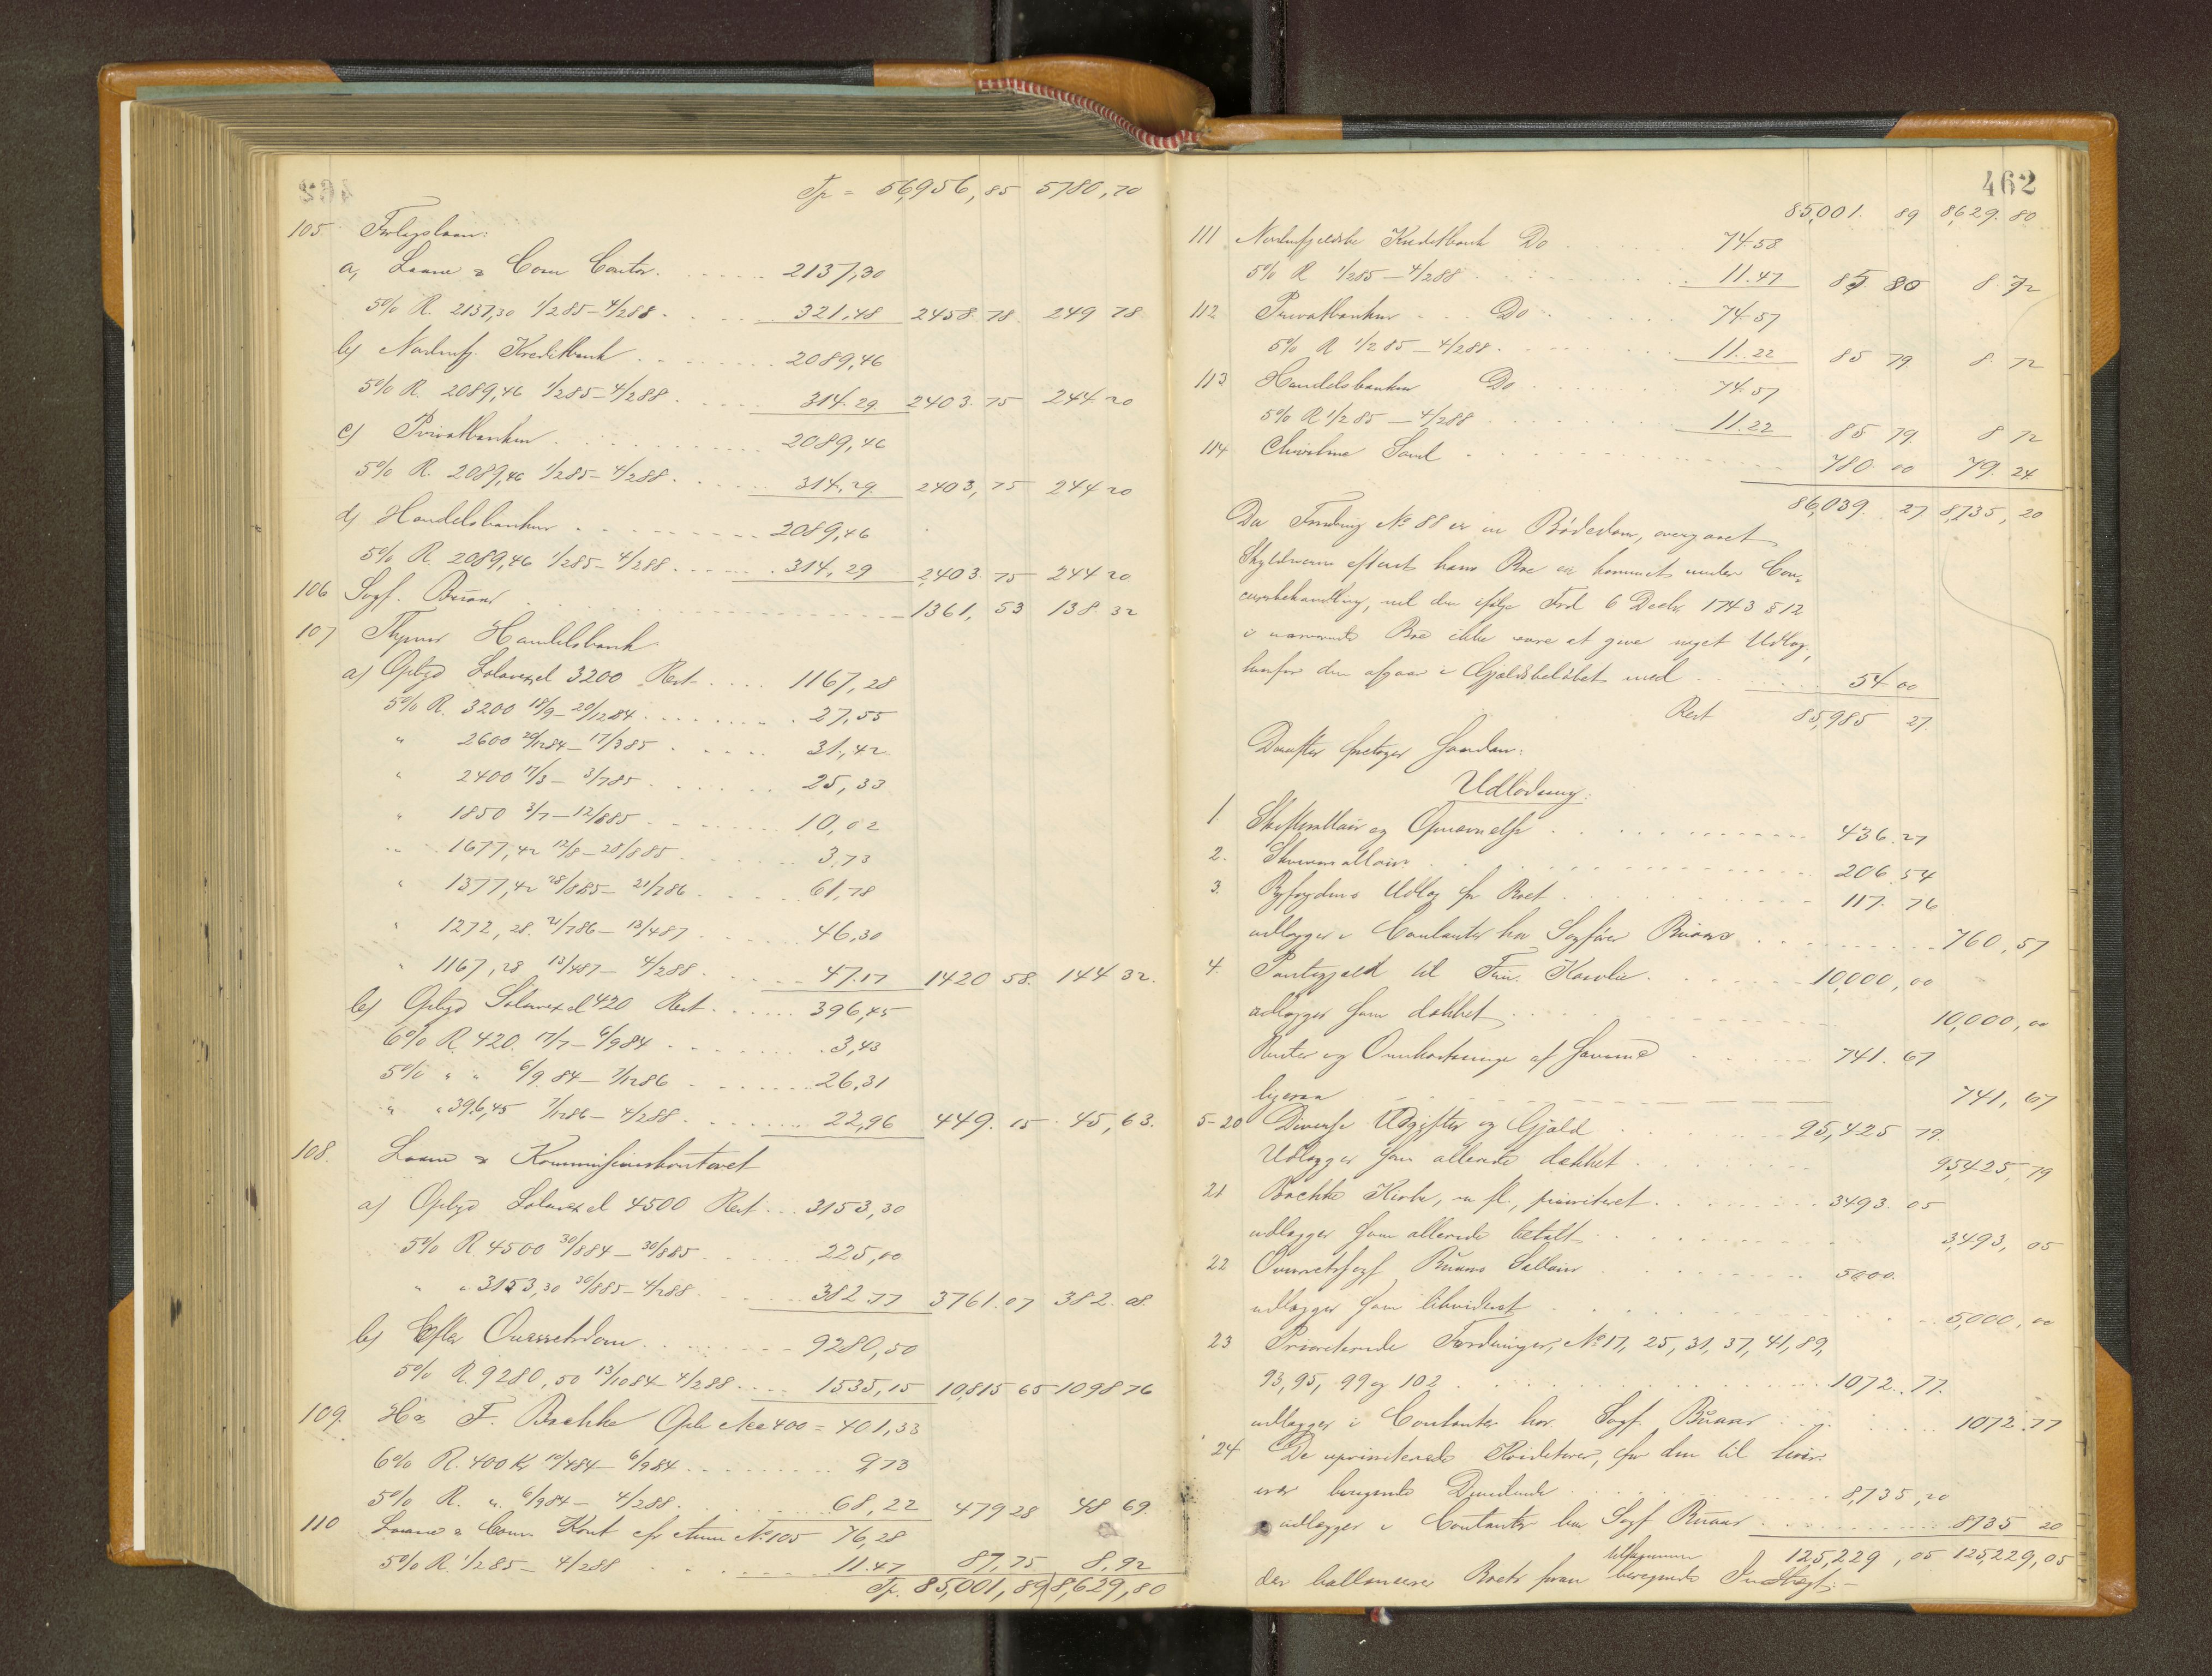 Tr = 56,956,85 5780,70
105 Forligslaan:
a, Laane & Com Contor. 2137,30
5% R. 2137,30 1/2 85 - 4/2 88 . 321,48 2458.78. 249 78
b) Nordenfj. Kreditbank 2089,46
5% R. 2089,46 1/2 85 - 4/2 88 . 314.29. 2403.75 244.20
c) Privatbanken 2089,46
5% R. 2089,46 1/2 85 - 4/2 88 . 314,29. 2403,75 244 20
d) Handelsbanken 2089,46
5% R. 2089,46 1/2 85 - 4/2 88 . 314,29 2,403.75 244 20
106 Sagf. Buaas 1361,53 138.32
107 Handelsbank
a) Opbgd Solavexel 3200 Rest 1167,28
5% R. 3200 18/9 - 20/12 84 . 27,55
" 2600 20/12 84 - 17/3 85 . 31,42
" 2400 17/3 - 3/7 85 . 25,33
" 1850 3/7 - 12/8 85 . 10,02
" 1677,42 12/8 - 28/8 85 3,73
" 1377,42 28/8 85 - 21/7 86 . 61,78
" 1272,28. 21/7 86 - 13/4 87 46,30
" 1167,28 13/4 87 - 4/2 88 . 47.17 1420 58. 144 32.
b) Opbgd Solavexel 420 Rest 396,45
6% R 420. 17/7 - 6/9 84 . 3,43
5% " " 6/9 84 - 7/12 86 26,31
" " 396,45 7/12 86 - 4/2 88 . 22,96 449.15 . 45,63.
108. Laane & Kommissionskontoret
a) Opbgd Solavexel 4500 Rest 3153,30
5% R. 4500 30/8 84 - 30/8 85 225,00
" " 3153,30 30/8 85 - 4/2 88 . 382.77 3761.07 382.08.
b) Efter Overretsdom 9280,50
5% R. 9280,50 13/10 84 - 4/2 88 1535,15 10,815 65 1098 76
109. H & F. Bachke 400 = 401,33
6% R. 400 Kr 19/4 84 - 6/9 84 9,73
5% R. " 6/9 84 - 4/2 88 . 68,22 479 28 48 69.
110 Laane & Com. Kont No 105 76,28
5% R 1/2 85 - 4/2 88 11.47 87,75 8,92
Tr. 85,001,89 8,629,80
462
85,001. 89 8,629.80
111 Nordenfjeldske Kreditbank Do 74.58
5% R 1/2 85 - 4/2 88 11.47 85 80 8.72
112 Privatbanken Do 74.57
5% R 1/2 85 - 4/2 88 . 11.22 85 79. 8.72
113 Handelsbanken Do 74.57
5% R 1/2 85 - 4/2 88 11.22 85 79. 8 72
114 Sand 780.00 79.24
86,039. 27 8,735,20
Da Fordring No 88 er en Bødedom, overgaaet
Skyldneren efterat hans Boe er kommet under Con-
cursbehandling, vil den ifølge Frd 6 Decbr 1743 § 12
i nærværende Boe ikke være at give noget Udlæg,
hvorfor den afgaar i Gjældsbeløbet med 54.00
Rest 85,985 27.
Derefter foretages saadan:
Udlodning:
1 Skiftesallair og Opnævnelse 436.27
2. Skriversallair 206.54
3. Byfogdens Udlæg for Boet 117.76
udlægges i Contanter hos Sagfører Buaas 760,57
4. Pantegjeld til 10,000,00
udlægges som dækket 10,000,00
Renter og Omkostninger af samme 741.67
ligesaa 741,67
5-20 Diverse Udgifter og Gjæld 95,425 79.
Udlægges som allerede dækket 95,425,79
21 Bachke Kirke, m fl., prioriteret 3493.05
udlægges som allerede betalt 3,493,05
22 Overretssagf Buaas Sallair 5000.
udlægges som likvideret 5,000,00
23 Prioriterede Fordringer, No 17, 25, 31, 37, 41, 89,
93, 95, 99 og 102 1072.77.
udlægges i Contanter hos Sagf. Buaas 1072.77
24 De uprioriterede Kreditorer, for den til hver
især beregnede Dividende 8,735,20
udlægges i Contanter hos Sagf Buaas 8735 20
tilsammen 125,229,05 125,229,05
der ballancerer Boets foran beregnede Indtægt.-